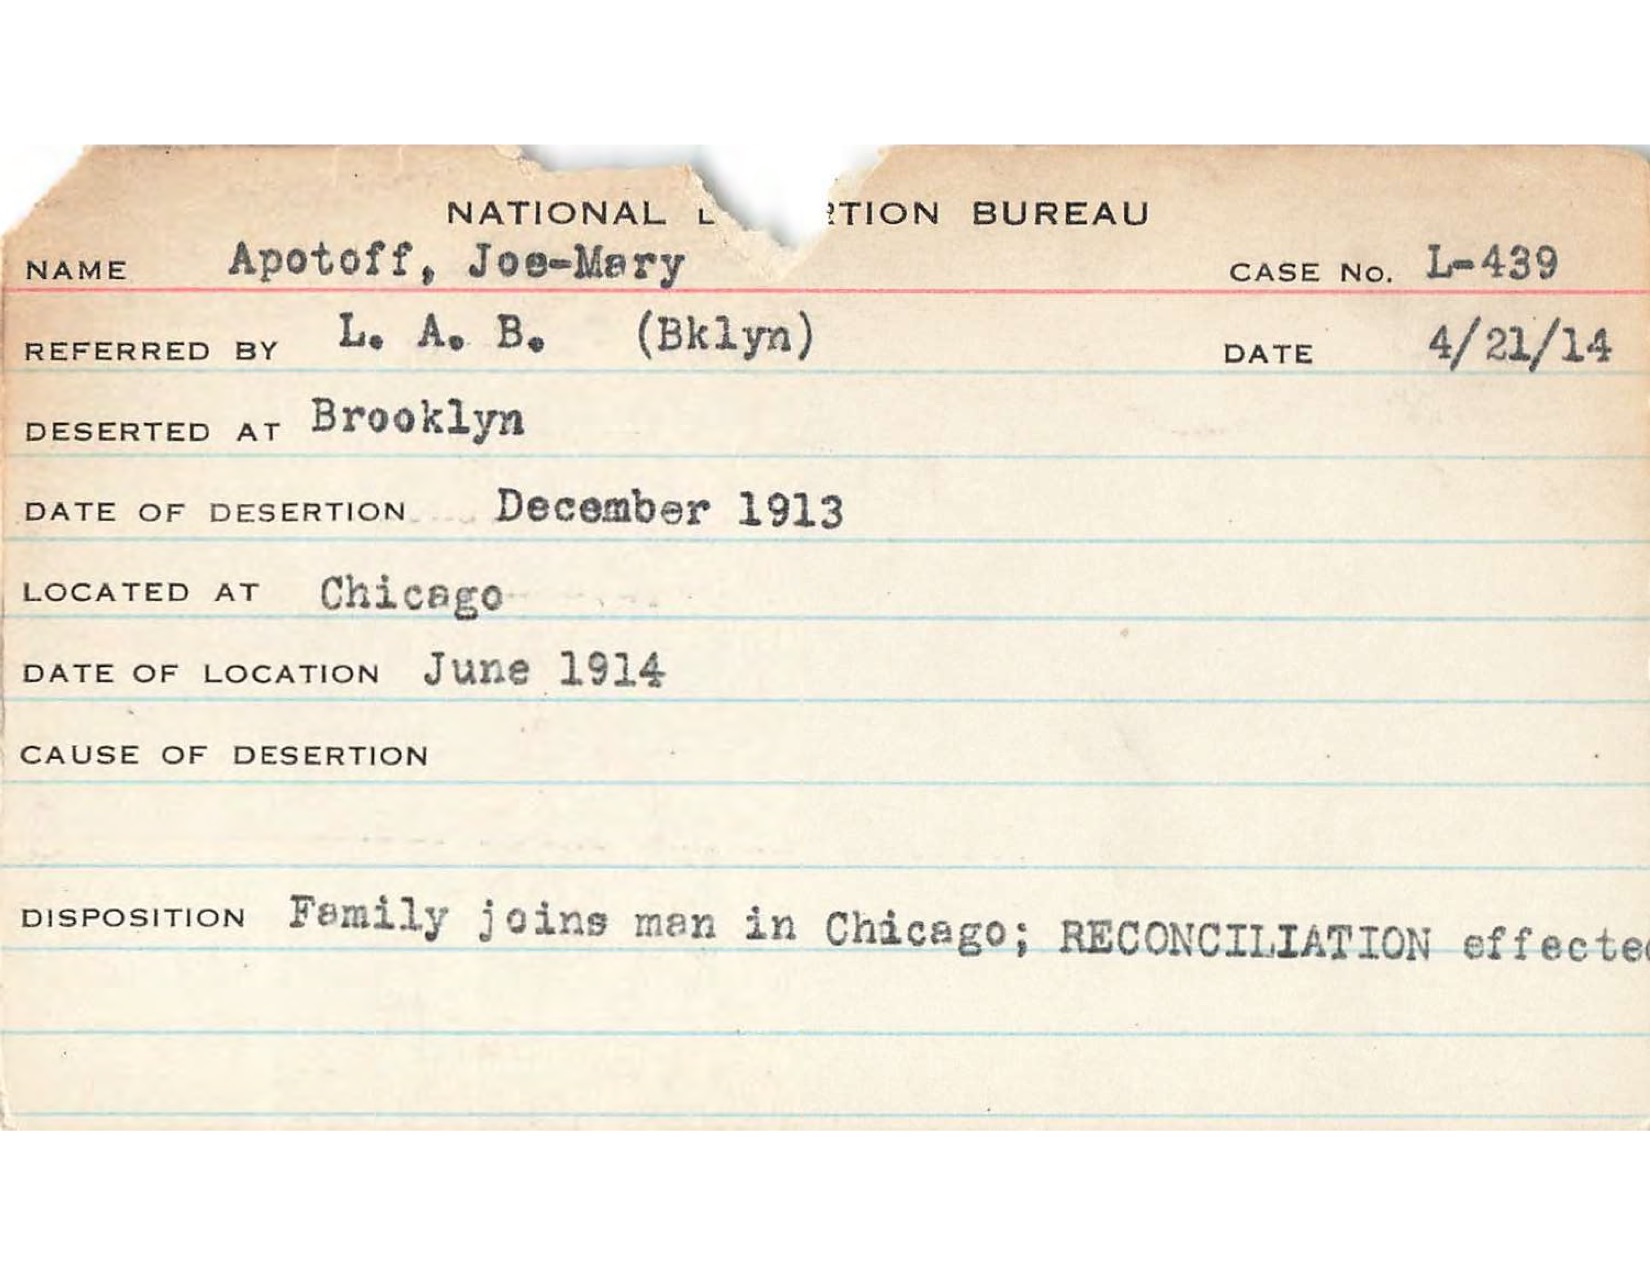 NATIONAL RTION BUREAU
NAME Apotoff, Joe-Mary CASE No. L-439
REFERRED BY L. A. B. (Bklyn) DATE 4/21/14
DESERTED AT Brooklyn
DATE OF DESERTION December 1913
LOCATED AT Chicago
DATE OF LOCATION June 1914
CAUSE OF DESERTION
DISPOSITION Family joins man in Chicago; RECONCILIATION effected